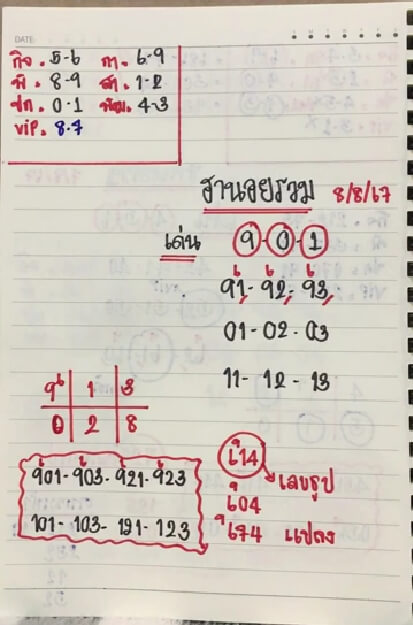 DATE
กิจ. 5-6 กา. 6-9
พิ. 8-9 สำ. 1-2
ปก. 0-1 พัฒ. 4-3
vip. 8-7
ฮานอยรวม 8/8/67
เด่น 9-0-1
91-92-93
01-02-03
11-12-13
9 1 3
0 2 8
614 เลขธูป
901-903-921-923
604
101-103-121-123
674 แปลง